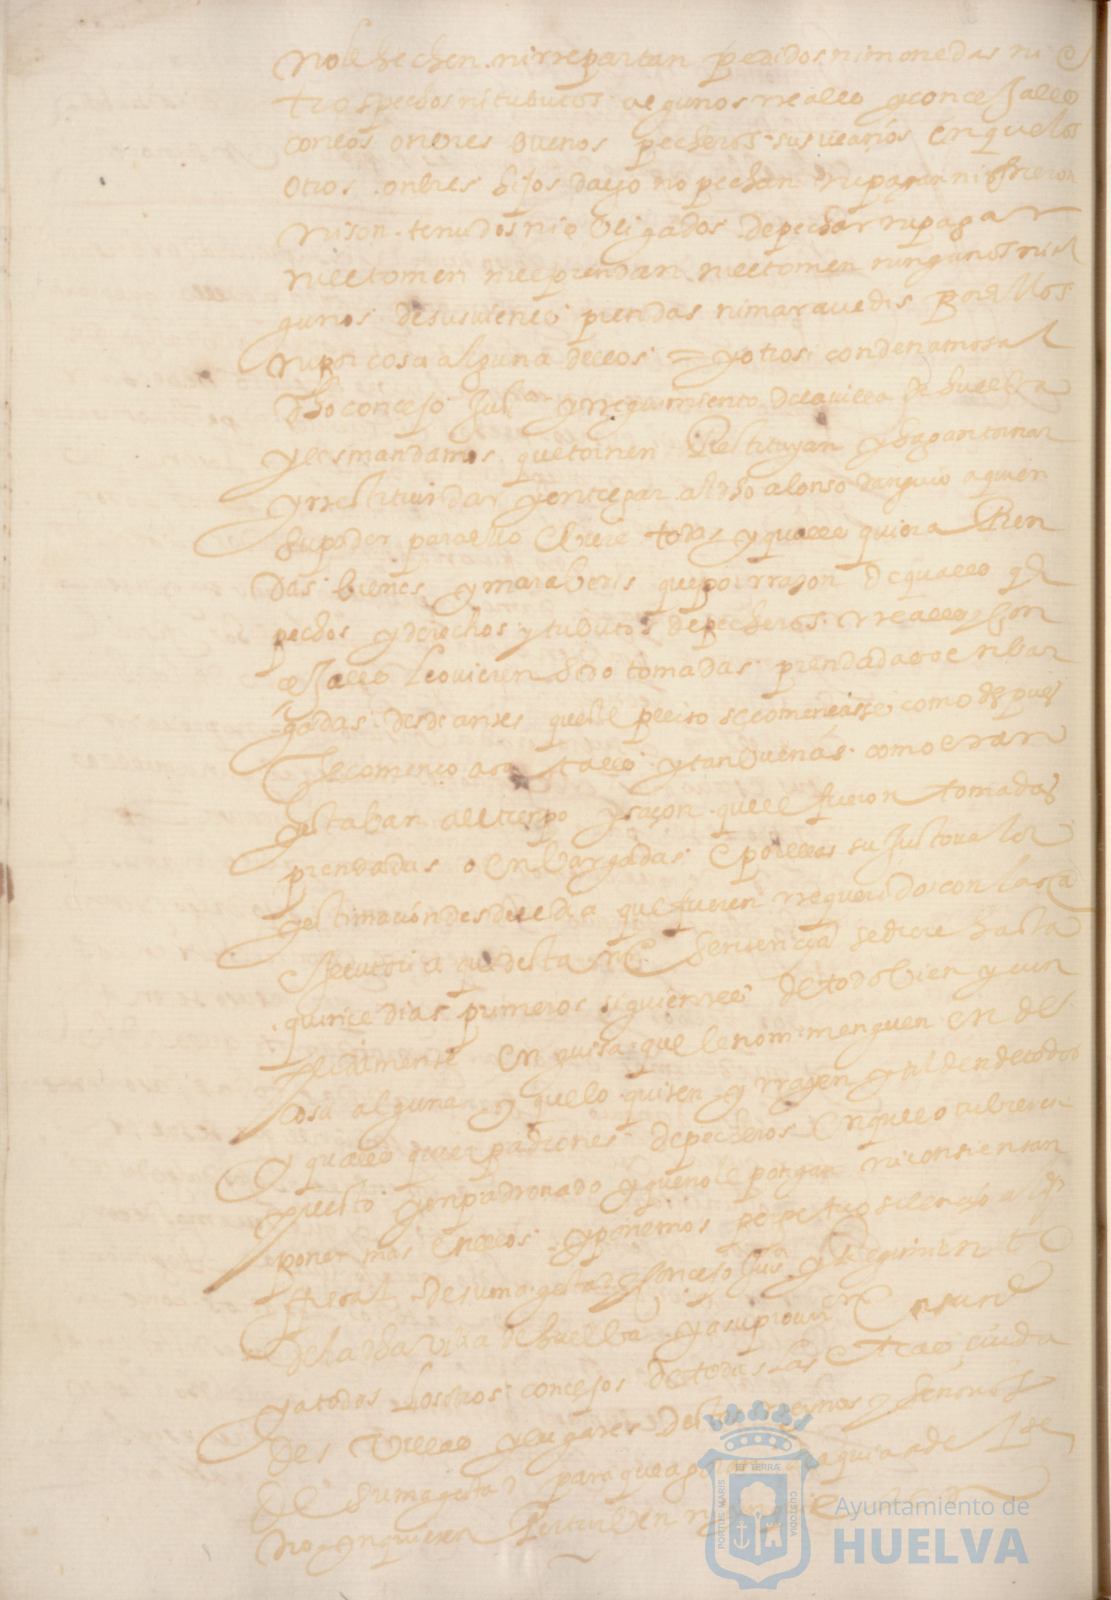 no le hechen ni rrepartan pedidos ni monedas ni o
tros pechos ni tributos algunos rreales y concejales
con los onbres buenos pecheros sus vecinos en que los
otros onbres hijos dalgo no pechan ni pagan ni
ni son tenudos ni obligados de pechar ni pagar
ni le tomen ni le prendan ni le tomen ningunos nin
gunos de sus vienes prendas ni maravedis por ellos
ni por cosa alguna dellos = y otrosi condenamos al
dho concejo y rregimiento de la villa de huelba
y les mandamos que tornen Restituyan y hagan tornar
y rrestituir dar y entregar al dho alonso a quien
su poder para ello todas y quales quiera Pren
das bienes y marabedis que por rrazon de quales qr
pechos y derechos y tributos de pecheros rreales y con
cejales le ovieren sido tomadas prendadas o enbar
gadas desde antes queste pleito se comencase como despues
se començo a tales y tan buenas como eran
y estaban al tienpo y saçon que le fueron tomadas
prendadas o enbargadas e por ellas su justo valor
y estimacion desde el dia que fueren rrequeridos con la
executoria que desta nra Sentencia se diere hasta
quince dias primeros siguientes de todo bien y cun
plidamente en guissa que le non menguen en de
cosa alguna y que lo quiten y rrayen y tilden de todos
y quales quier padrones de pecheros en que lo tubieren
puesto y enpadronado y que no le pongan ni consientan
poner mas en ellos y ponemos perpetuo silencio al
fiscal de su magestad concejo Justa y Regimiento
de la dha villa de huelba y a su procurador
y a todos los otros concejos de todas las otras ciuda
des Villas y lugares destos rreynos y señorios
de su magestad para que agora
no ynquieten Perturben ni
PORTUS MARIS
ET TERRÆ
CUSTODIA
Ayuntamiento de
HUELVA